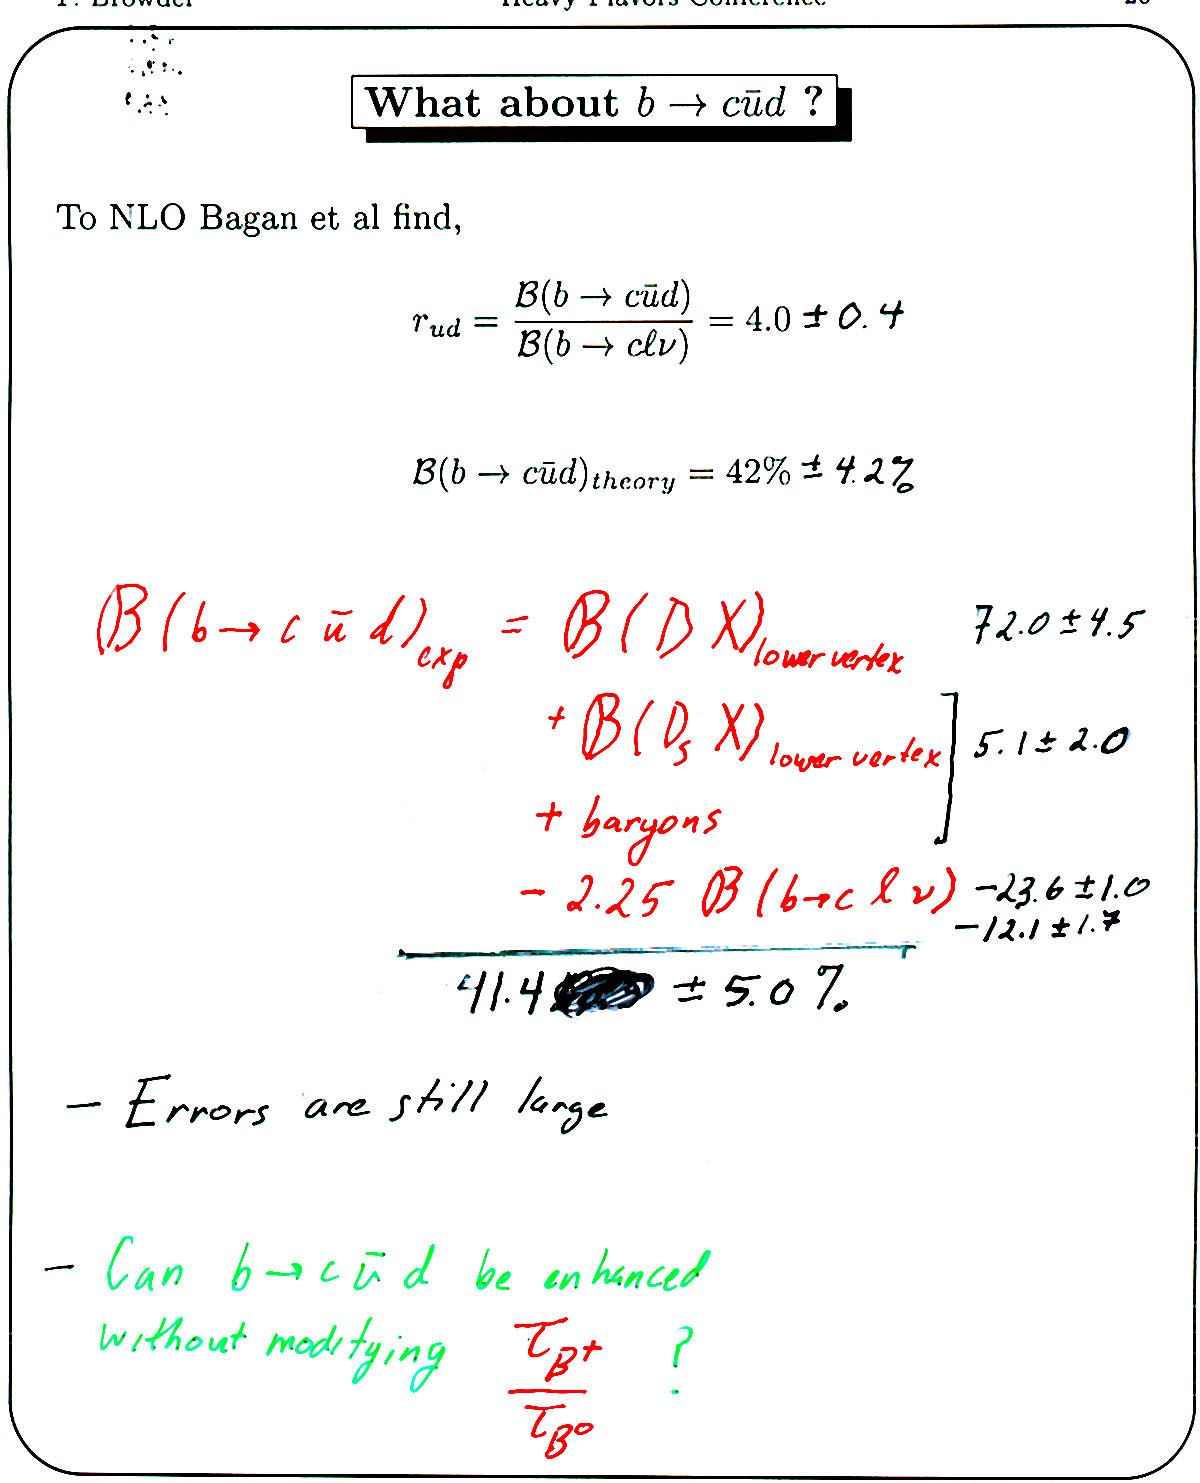 What about b → cūd ?
To NLO Bagan et al find,
r_ud = B(b → cūd) / B(b → cℓν) = 4.0 ± 0.4
B(b → cūd)_theory = 42% ± 4.2%
B(b → c ū d)_exp = B(D X)_lower vertex 72.0 ± 4.5
+ B(D_s X)_lower vertex ] 5.1 ± 2.0
+ baryons
- 2.25 B(b → c l ν) -23.6 ± 1.0
-12.1 ± 1.7
41.4 ± 5.0 %
- Errors are still large
- Can b → c ū d be enhanced
without modifying τ_B+ / τ_B0 ?